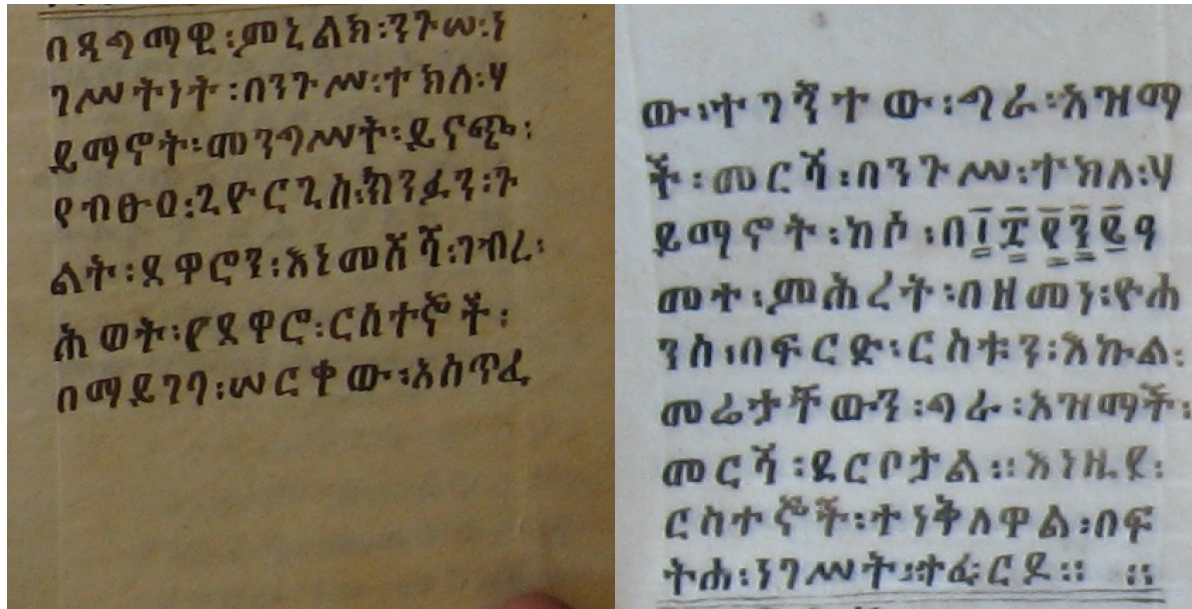 በዳግማዊ፡ምኒልክ፡ንጉሠ፡ነ
ገሥትነት፡በንጉሥ፡ተክለ፡ሃ
ይማኖት፡መንግሥት፡ይናጭ፡
የብፁዐ፡ጊዮርጊስ፡ክንፈን፡ጉ
ልት፡ደዋሮን፡እነመሸሻ፡ገብረ፡
ሕወት፡የደዋሮ፡ርስተኞች፡
በማይገባ፡ሠርቀው፡አስጥፈ
ው፡ተገኝተው፡ግራ፡አዝማ
ች፡መርሻ፡በንጉሥ፡ተክለ፡ሃ
ይማኖት፡ከሶ፡በ፲፰፻፺፩ዓ
መተ፡ምሕረት፡በዘመነ፡ዮሐ
ንስ፡በፍርድ፡ርስቱን፡እኩል፡
መሬታቸውን፡ግራ፡አዝማች፡
መርሻ፡ደርቦታል።እነዚያ፡
ርስተኞች፡ተነቅለዋል፡በፍ
ትሐ፡ነገሥት፡ተፈርዶ። ።